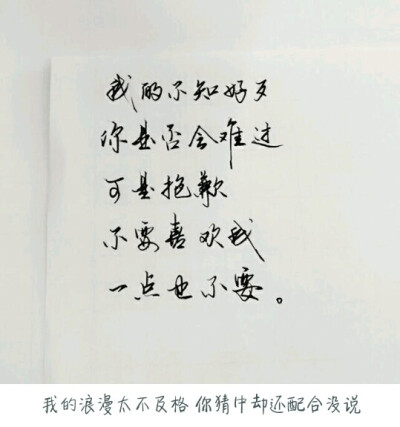 我的不知好歹
你是否会难过
可是抱歉
不要喜欢我
一点也不要。
我的浪漫太不及格 你猜中却还配合没说